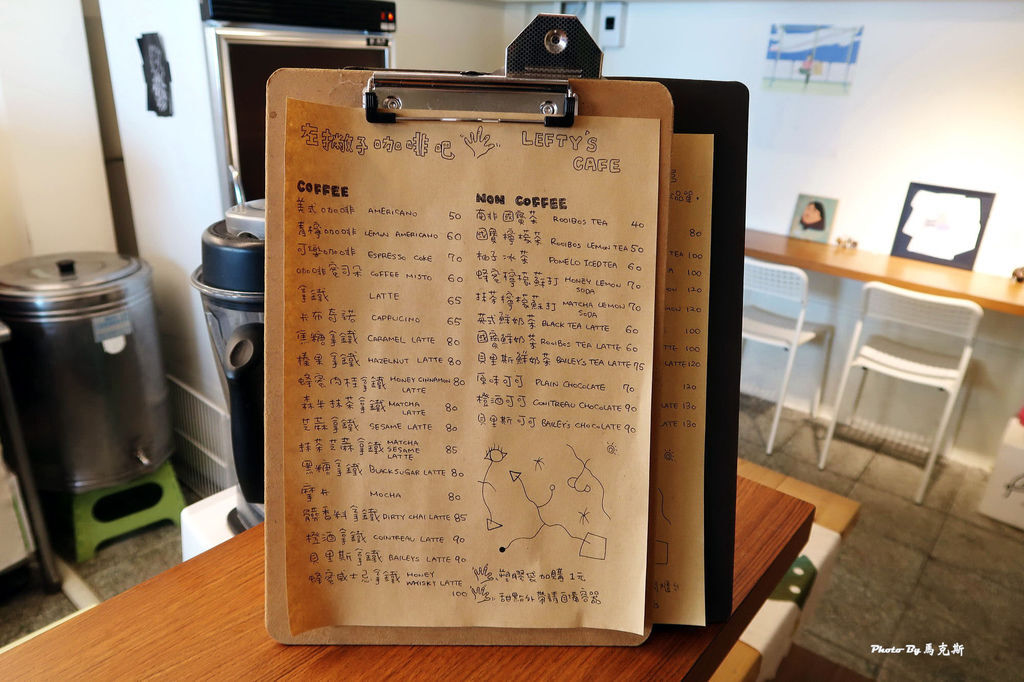 左撇子咖啡吧 LEFTY'S CAFE
COFFEE
美式咖啡 AMERICANO 50
青檸咖啡 LEMON AMERICANO 60
可樂咖啡 ESPRESSO COKE 70
咖啡蜜司朵 COFFEE MISTO 60
拿鐵 LATTE 65
卡布奇諾 CAPPUCINO 65
焦糖拿鐵 CARAMEL LATTE 80
榛果拿鐵 HAZELNUT LATTE 80
蜂蜜肉桂拿鐵 HONEY CINNAMON LATTE 80
森半抹茶拿鐵 MATCHA LATTE 80
芝麻拿鐵 SESAME LATTE 80
抹茶芝麻拿鐵 MATCHA SESAME LATTE 85
黑糖拿鐵 BLACK SUGAR LATTE 80
摩卡 MOCHA 80
髒香料拿鐵 DIRTY CHAI LATTE 85
橙酒拿鐵 COINTREAU LATTE 90
貝里斯拿鐵 BAILEYS LATTE 90
蜂蜜威士忌拿鐵 HONEY WHISKY LATTE 100
NON COFFEE
南非國寶茶 ROOIBOS TEA 40
國寶檸檬茶 ROOIBOS LEMON TEA 50
柚子冰茶 POMELO ICED TEA 60
蜂蜜檸檬蘇打 HONEY LEMON SODA 70
抹茶檸檬蘇打 MATCHA LEMON SODA 70
英式鮮奶茶 BLACK TEA LATTE 60
國寶鮮奶茶 ROOIBOS TEA LATTE 60
貝里斯鮮奶茶 BAILEY'S TEA LATTE 75
原味可可 PLAIN CHOCOLATE 70
橙酒可可 COINTREAU CHOCOLATE 90
貝里斯可可 BAILEY'S CHOCOLATE 90
塑膠袋加購 1元
甜點外帶請自備容器
80
TEA 100
100
120
100
100
LATE 120
120
LATE 130
LATE 130
Photo By 馬克斯